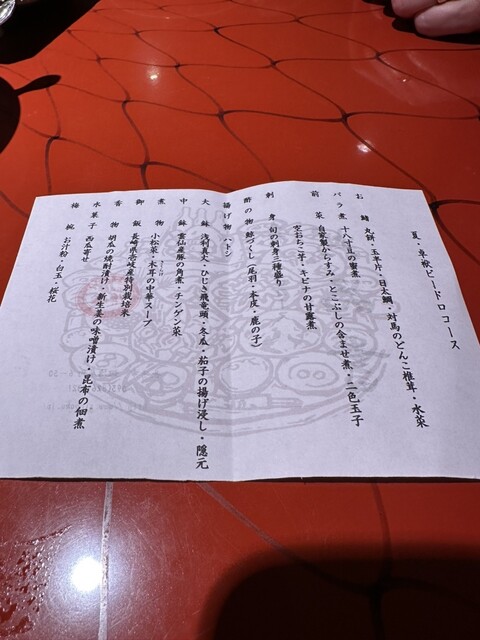 夏・卓袱ビードロコース
お鰭 丸餅・玉半片・日太鯛・対馬のどんこ椎茸・水菜
バラ煮 十六寸豆の蜜煮
前菜 自家製からすみ・とこぶしの含ませ煮・二色玉子
空おちこ芋・キビナの甘露煮
刺身 旬の刺身三種盛り
酢の物 鯨づくし(尾羽・本皮・鹿の子)
揚げ物 ハトシ
大鉢 浅利真丈・ひじき飛竜頭・冬瓜・茄子の揚げ浸し・隠元
中鉢 雲仙産豚の角煮・チンゲン菜
煮物 小松菜・木耳の中華スープ
御飯 長崎県壱岐産特別栽培米
香物 胡瓜の焼酎漬け・新生姜の味噌漬け・昆布の佃煮
水菓子 西瓜寄せ
梅椀 お汁粉・白玉・桜花